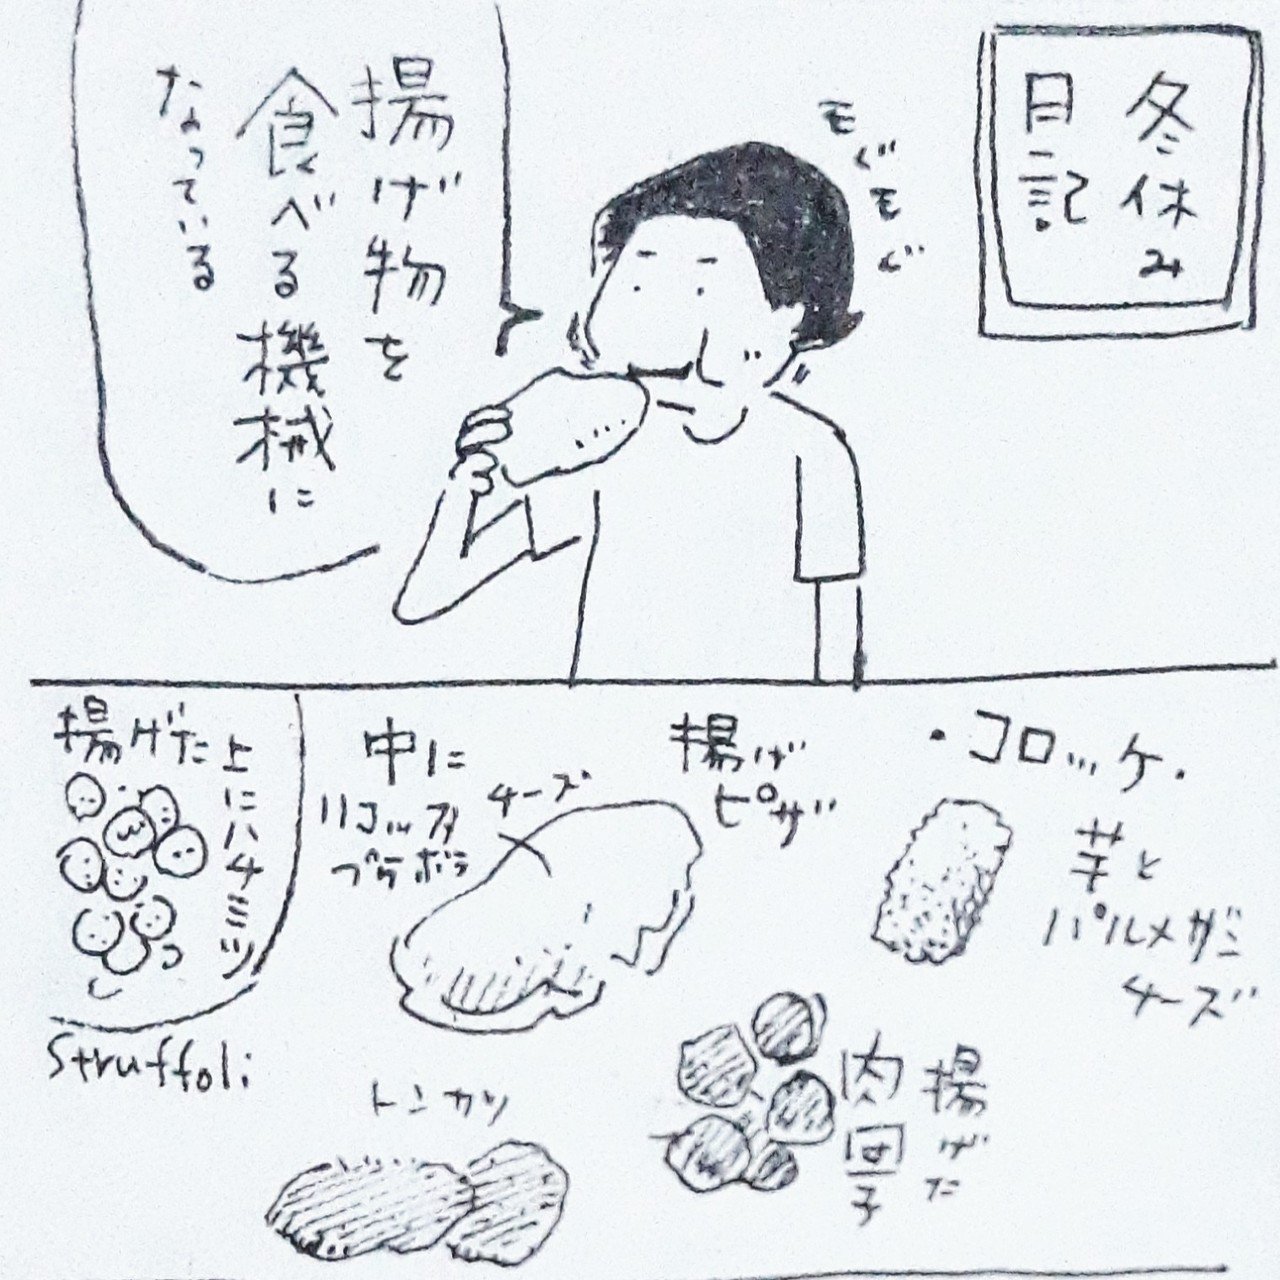 冬休み
日記
モグモグ
揚げ物を
食べる機械に
なっている
・コロッケ・
芋と
パルメザン
チーズ
揚げ
ピザ
チーズ
中に
リコッタ
プラボラ
揚げた
上にハチミツ
Struffoli
揚げた
肉団子
トンカツ